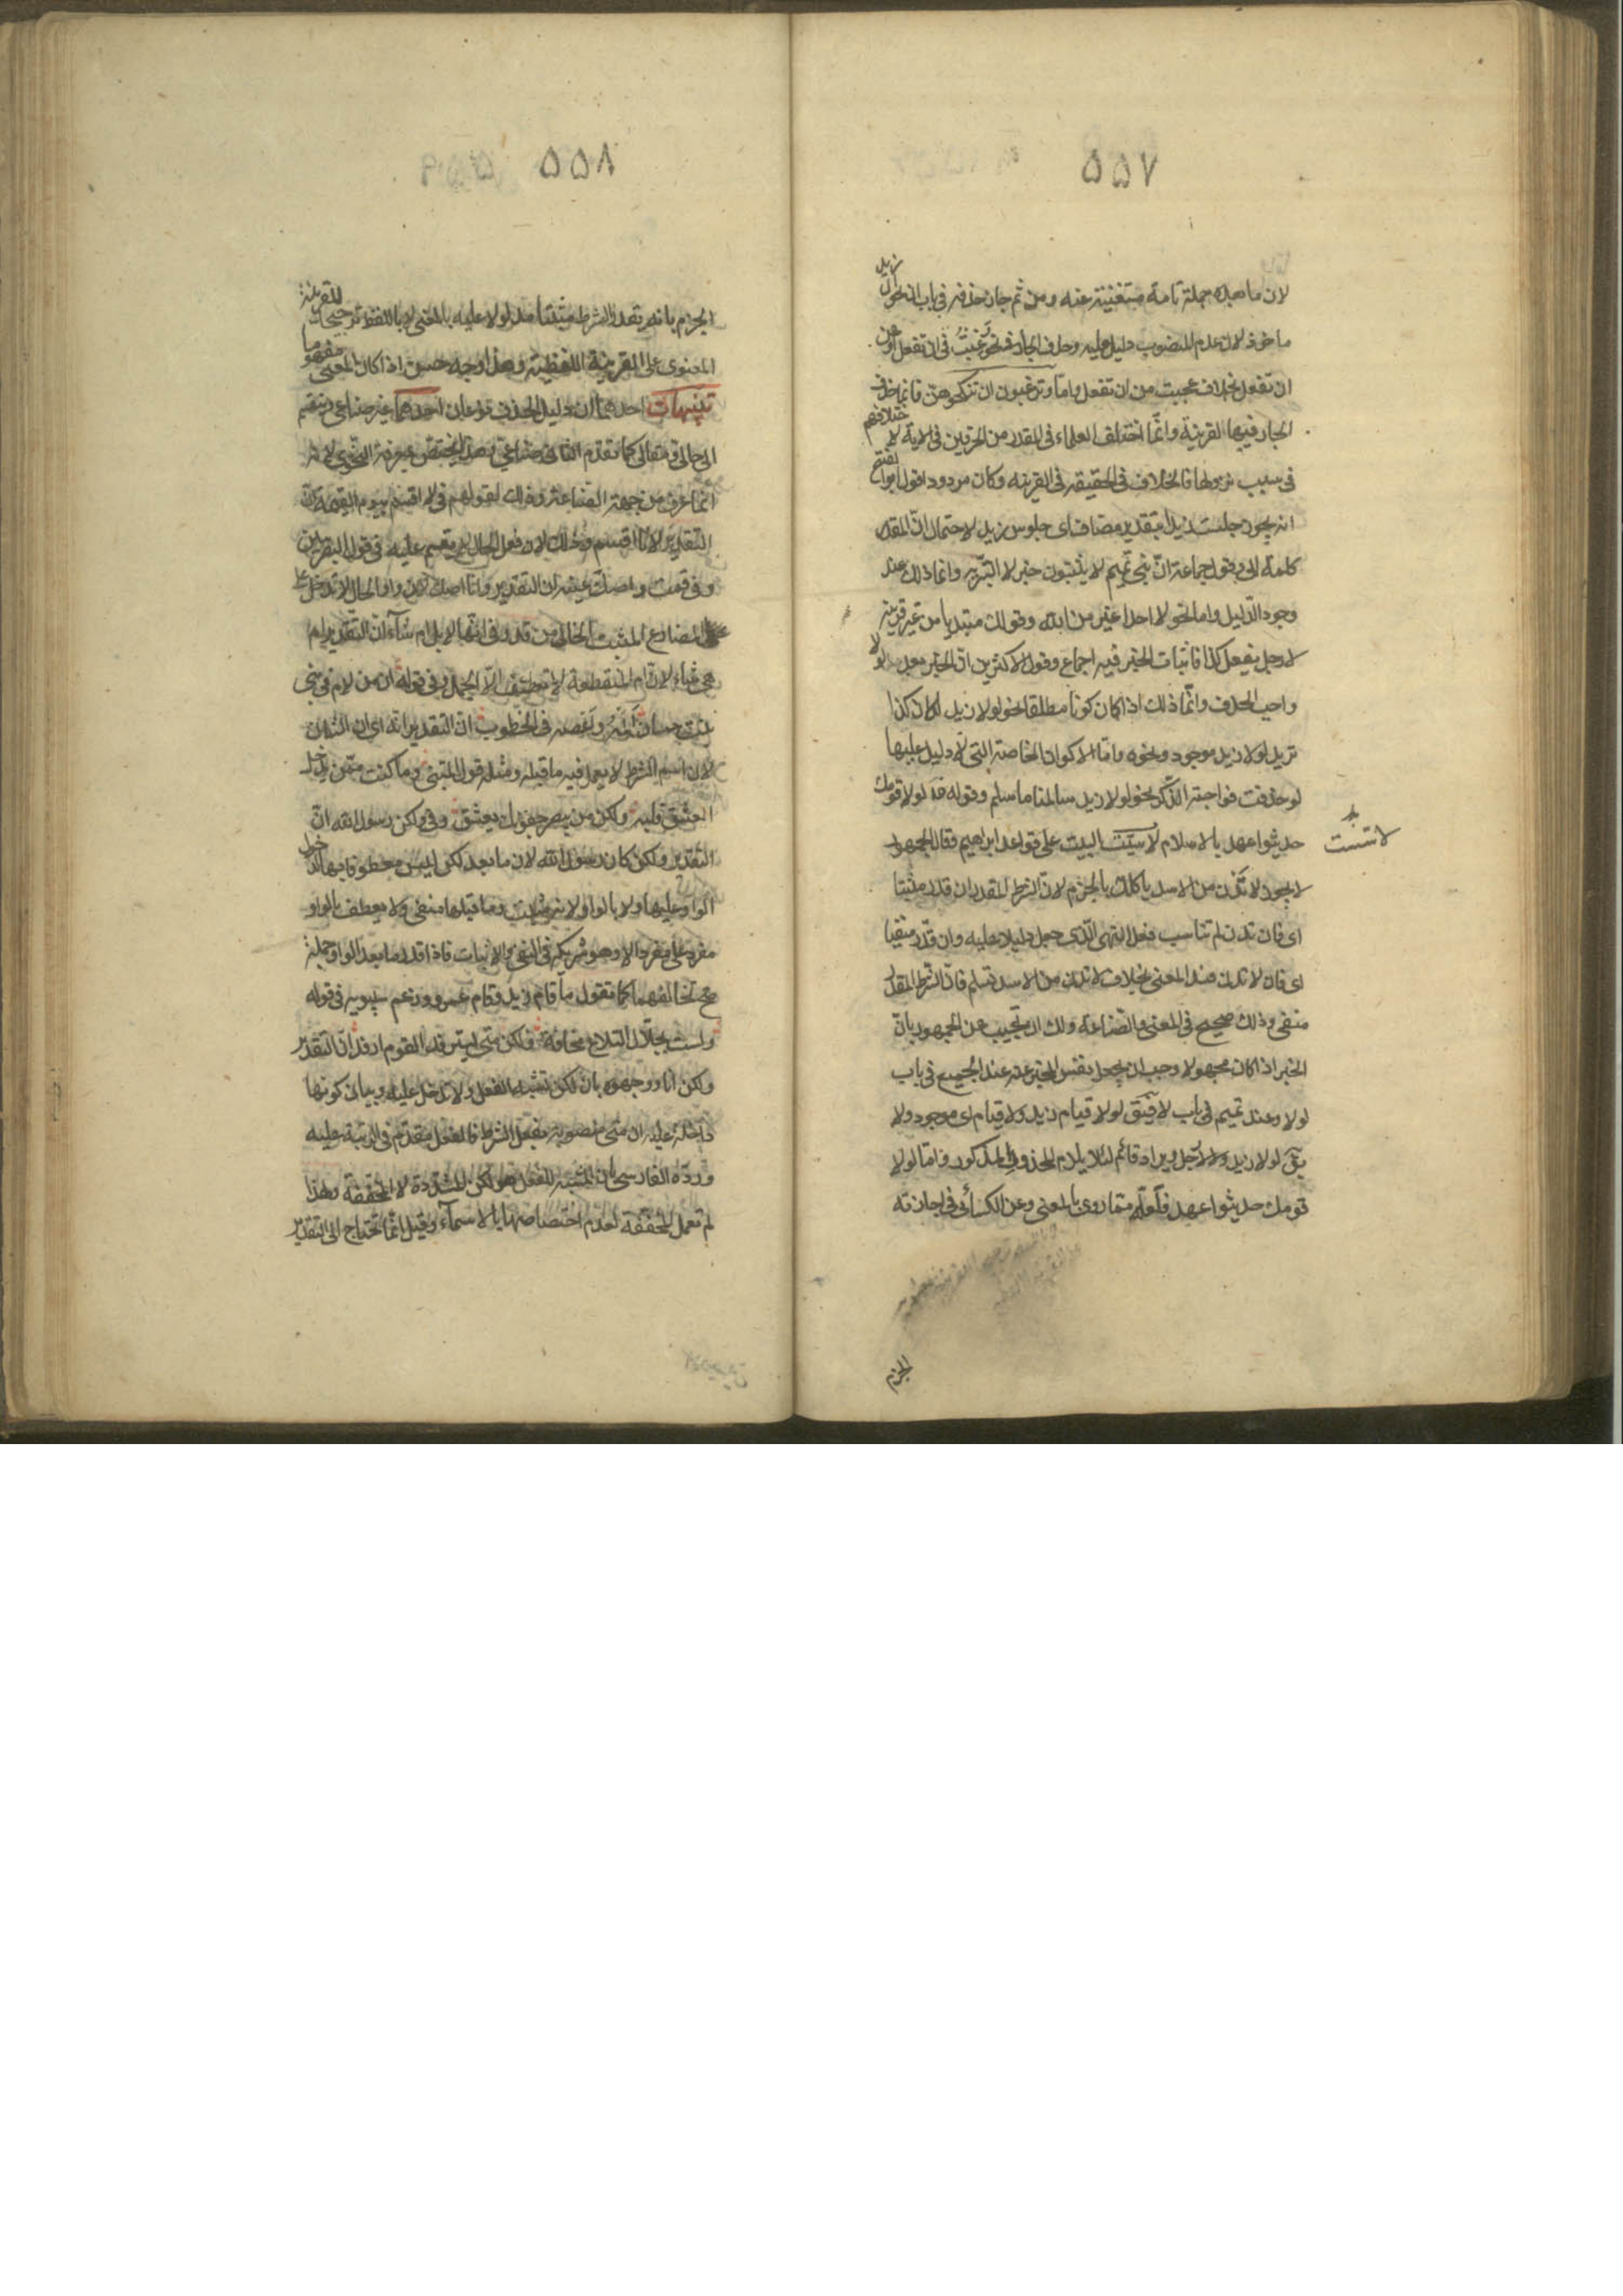 ٥٥٧
لان ما بعده جملة تامة مستغنية عنه ومن ثم جاز حذفه في باب ان نحو ان زيد
ماخوذ لان عدم المنصوب دليل عليه وحذف الجار في نحو رغبت في ان تفعل او عن
ان تفعل بخلاف عجبت من ان تفعل واما وترغبون ان تنكحوهن فانما حذف
الجار فيها لقرينة وانما اختلف العلماء في المقدر من الحرفين في الاية لاختلافهم
في سبب نزولها فالخلاف في الحقيقة في القرينة وكان مردودا قول ابو الفتح
انه يجوز جلست زيدا بتقدير مضاف اي جلوس زيد لاحتمال ان المقدر
كلمة الى وقول جماعة ان بني تميم لا يثبتون خبر لا التبرية وانما ذلك عند
وجود الدليل واما نحو لا احد اغير من الله وقولك مبتديا من غير قرينة
لا رجل يفعل كذا فاثبات الخبر فيه اجماع وقول الاكثرين ان الخبر بعد لولا
واجب الحذف وانما ذلك اذا كان كونا مطلقا نحو لولا زيد لكان كذا
تريد لولا زيد موجود ونحوه واما الاكوان الخاصة التي لا دليل عليها
لو حذفت فواجبة الذكر نحو لولا زيد سالمنا ما سلم وقوله لولا قومك
حديثوا عهد بالاسلام لاسست البيت على قواعد ابراهيم فقال الجمهور
لا يجوز لا تدن من الاسد ياكلك بالجزم لان الشرط المقدر ان قدر مثبتا
اي فان تدن لم تناسب فعل النهي الذي جعل دليلا عليه وان قدر منفيا
اي فان لا تدن فسد المعنى بخلاف لا تدن من الاسد تسلم فان الشرط المقدر
منفي وذلك صحيح في المعنى والصناعة ولك ان تجيب عن الجمهور بان
الخبر اذا كان مجهولا وجب ان يجعل نفس المخبر عنه عند الجميع في باب
لولا وعند تميم في باب لا فيق لولا قيام زيد ولا قيام اي موجود ولا
يق لولا زيد ولا رجل ويراد قائم لئلا يلزم المحذور المذكور واما لولا
قومك حديثوا عهد فلعله مما روي بالمعنى وعن الكسائي في اجازته
الجزم
٥٥٨
الجزم بانه يقدر الشرط مثبتا مدلولا عليه بالمعنى لا باللفظ ترجيحا للقرينة
المعنوي على القرينة اللفظية وهذا وجه حسن اذا كان المعنى مفهوما
تنبيهات احدها ان دليل الحذف نوعان احدهما غير صناعي وينقسم
الى حالي ومقالي كما تقدم الثاني صناعي وهذا يختص بمعرفته النحوي لانه
انما عرف من جهة الصناعة وذلك لقولهم في لا اقسم بيوم القيمة ان
التقدير لانا اقسم وذلك لان فعل الحال لا يقسم عليه في قول البصريين
وفي قمت واصك عينه ان التقدير وانا اصك لان واو الحال لا تدخل على
المضارع المثبت الخالي من قد وفي انها لابل ام شآء ان التقدير ام
هي شاء لان ام المنقطعة لا تعطف الا الجمل وفي قوله ان من لام في بني
بنت حسان المه واعصه في الخطوب ان التقدير انه اي ان الشان
لان اسم الشرط لا يعمل فيه ما قبله ومثله قول المتنبي وما كنت ممن يدخل
العشق قلبه ولكن من يبصر جفونك يعشق وفي ولكن رسول الله ان
التقدير ولكن كان رسول الله لان ما بعد لكن ليس معطوفا بها لدخول
الواو عليها ولا بالواو لانه مثبت وما قبلها منفي ولا يعطف بالواو
مفرد على مفرد الا وهو شريكه في النفي والاثبات فاذا قدر ما بعد الواو جملة
صح تخالفهما كما تقول ما قام زيد وقام عمرو وزعم سيبويه في قوله
ولست بحلال التلاع مخافة ولكن متى يسترفد القوم ارفد ان التقدير
ولكن انا ووجهوه بان لكن تشبه الفعل فلا تدخل عليه وبيان كونها
داخلة عليه ان متى منصوبة بفعل الشرط فالفعل مقدم في الرتبة عليه
ورده الفارسي بان المشبه للفعل هو لكن المشددة لا المخففة ولهذا
لم تعمل المخففة لعدم اختصاصها بالاسمآء وقيل انما تحتاج الى التقدير